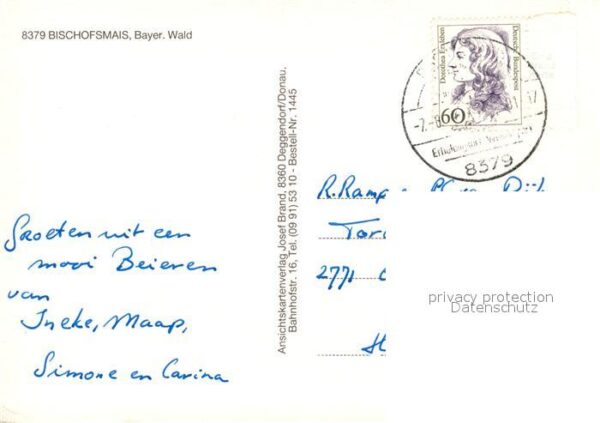 8379 BISCHOFSMAIS, Bayer. Wald
Dorothea Erxleben
Deutsche Bundespost
60
-7.-8.
8379
Groeten uit een
mooi Beieren
van
Ineke, Maap,
Simone en Carina
Ansichtskartenverlag Josef Brand, 8360 Deggendorf/Donau.
Bahnhofstr. 16, Tel. (09 91) 53 10 - Bestell-Nr. 1445
R.
2771
privacy protection
Datenschutz